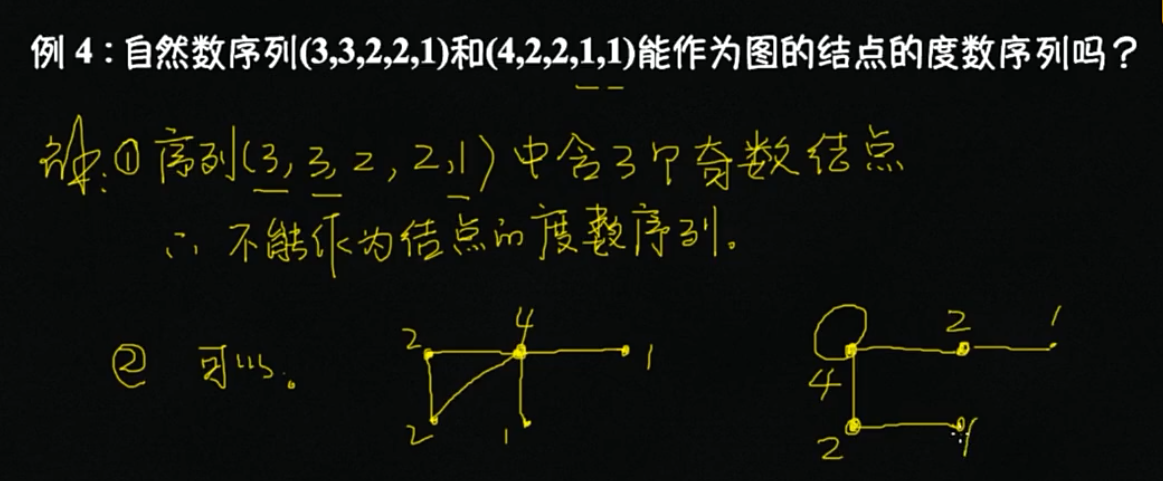 例 4：自然数序列(3,3,2,2,1)和(4,2,2,1,1)能作为图的结点的度数序列吗？
解：① 序列(3,3,2,2,1)中含3个奇数结点
∴ 不能作为结点的度数序列。
② 可以。
2 4 1
2 1
2 1
4
2 1